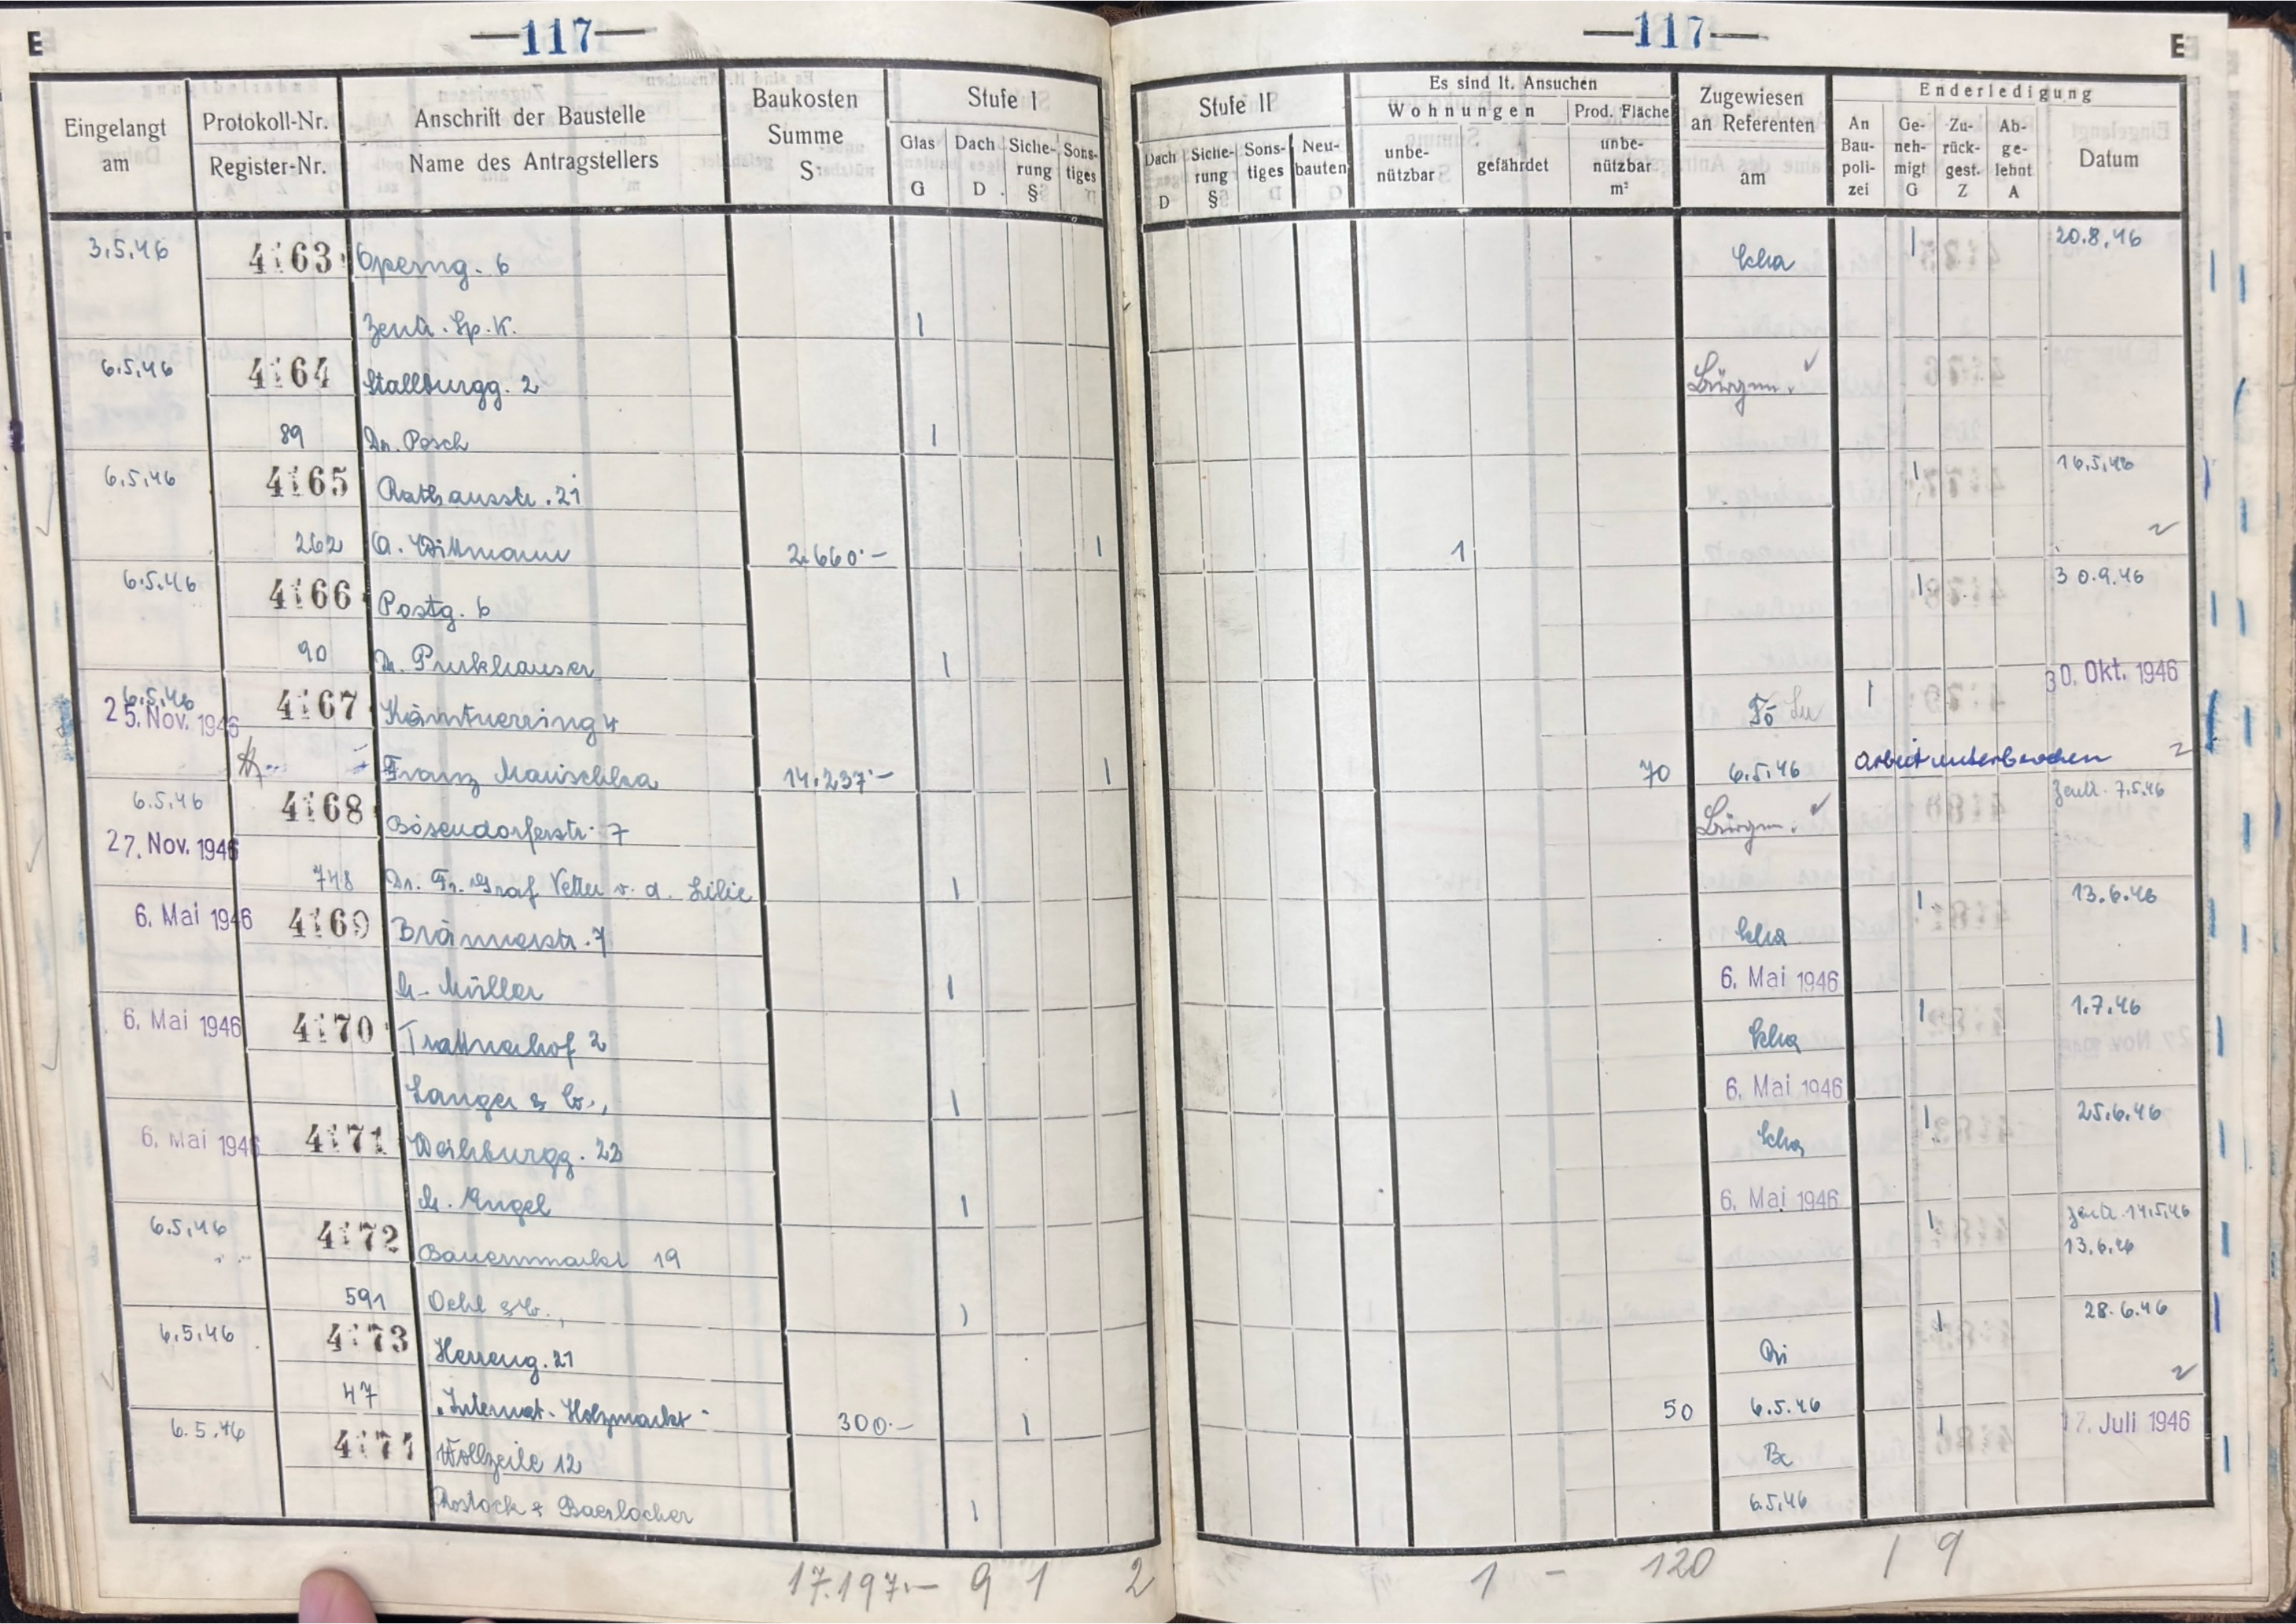 E —117— —117— E
Eingelangt am
Protokoll-Nr.
Register-Nr.
Anschrift der Baustelle
Name des Antragstellers
Baukosten Summe S:
Stufe I
Glas G
Dach D
Siche-rung §
Sons-tiges
Stufe II
Dach D
Siche-rung §
Sons-tiges
Neu-bauten
Es sind lt. Ansuchen
Wohnungen
unbe-nützbar
gefährdet
Prod. Fläche
unbe-nützbar m²
Zugewiesen an Referenten am
Enderledigung
An Bau-poli-zei
Ge-neh-migt G
Zu-rück-gest. Z
Ab-ge-lehnt A
Datum
3.5.46 4163 Operng. 6 Kha | 20.8.46
Zentr. Sp. K. |
6.5.46 4164 Stallburgg. 2 Bürgm. ✓
89 Dr. Pesch |
6.5.46 4165 Rathausstr. 21 | 16.5.46
262 A. Wittmann 2.660.— | 1
6.5.46 4166 Postg. 6 | 30.9.46
90 Dr. Purkhauser |
6.5.46 4167 Kärntnerring 4 Fö | 30. Okt. 1946
25. Nov. 1946
Franz Mauischka 14.237.— | 70 6.5.46 Arbeit unterbrochen
6.5.46 4168 Bösendorferstr. 7 Bürgm. ✓ Zentr. 7.5.46
27. Nov. 1946
748 Dr. Fr. Graf Vetter v. d. Lilie |
6. Mai 1946 4169 Bräunerstr. 7 Kha | 13.6.46
Müller | 6. Mai 1946
6. Mai 1946 4170 Trattnerhof 2 Kha | 1.7.46
Langer & Co., | 6. Mai 1946
6. Mai 1946 4171 Weihburgg. 23 Kha | 25.6.46
Angel | 6. Mai 1946
6.5.46 4172 Bauernmarkt 19 | Zentr. 14.5.46
13.6.46
591 Oehl & Co., |
6.5.46 4173 Herreng. 21 Ri | 28.6.46
47 "Internat. Holzmarkt" 300.— | 50 6.5.46
6.5.46 4174 Wollzeile 12 Be | 17. Juli 1946
Rostock & Baerlocher | 6.5.46
17.197.— 9 1 2 1 – 120 1 9